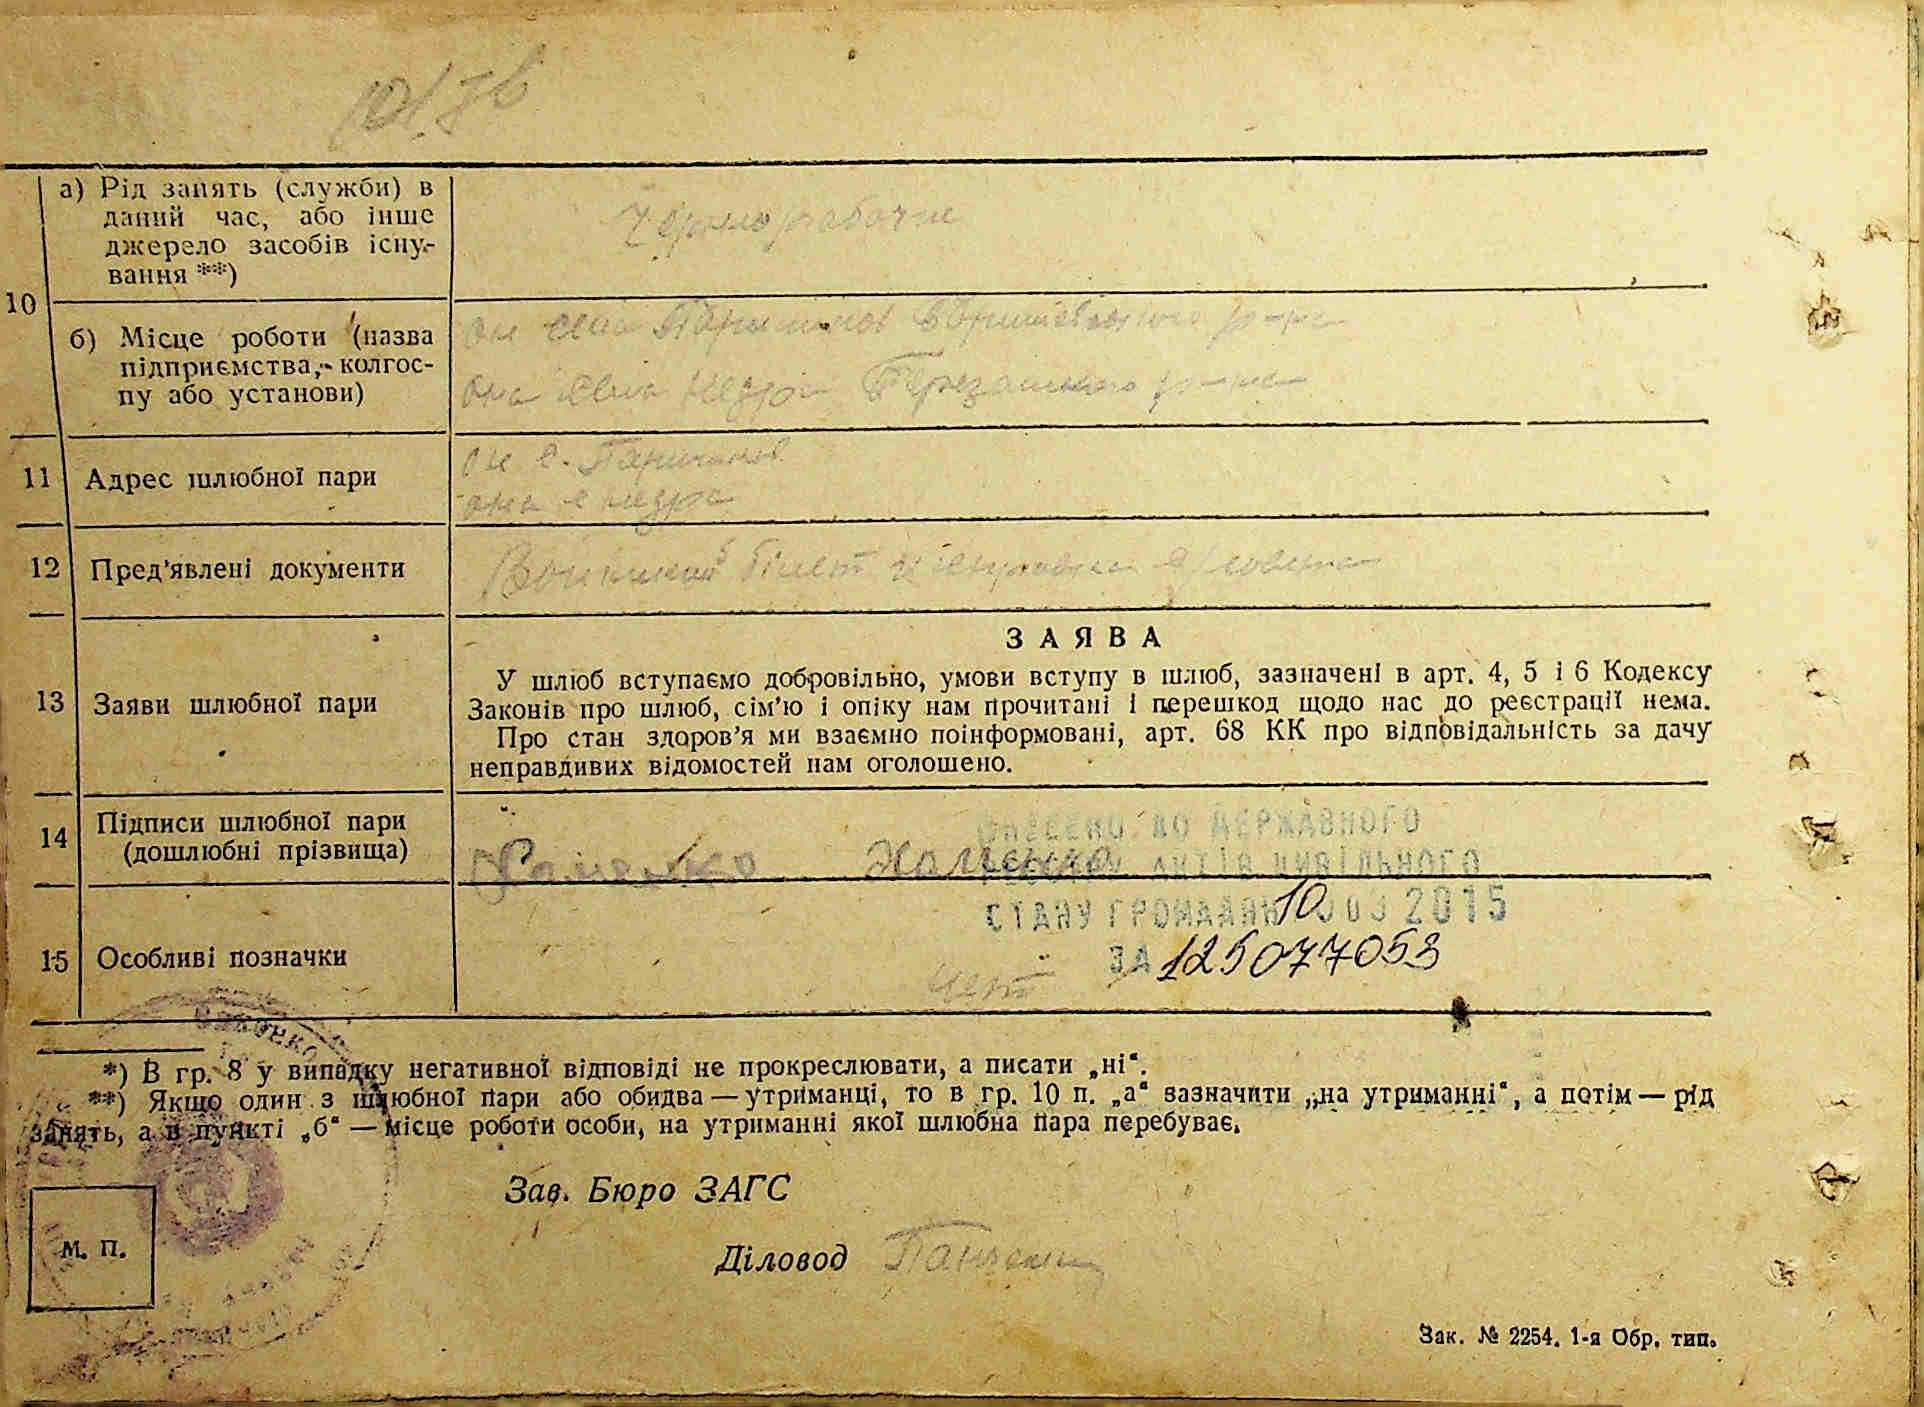 10
а) Рід занять (служби) в
даний час, або інше
джерело засобів існу-
вання **)
Чернорабочие
б) Місце роботи (назва
підприємства, колгос-
пу або установи)
он села р-на
она села Недра Березанского р-на
11
Адрес шлюбної пари
он с.
она с Недра
12
Пред'явлені документи
билет и
13
Заяви шлюбної пари
ЗАЯВА
У шлюб вступаємо добровільно, умови вступу в шлюб, зазначені в арт. 4, 5 і 6 Кодексу
Законів про шлюб, сім'ю і опіку нам прочитані і перешкод щодо нас до реєстрації нема.
Про стан здоров'я ми взаємно поінформовані, арт. 68 КК про відповідальність за дачу
неправдивих відомостей нам оголошено.
14
Підписи шлюбної пари
(дошлюбні прізвища)
Хоменко
ВНЕСЕНО ДО ДЕРЖАВНОГО
РЕЄСТРУ АКТІВ ЦИВІЛЬНОГО
СТАНУ ГРОМАДЯН 10 03 2015
ЗА 125077053
15
Особливі позначки
*) В гр. 8 у випадку негативної відповіді не прокреслювати, а писати „ні“.
**) Якщо один з шлюбної пари або обидва — утриманці, то в гр. 10 п. „а“ зазначити „на утриманні“, а потім — рід
занять, а в пункті „б“ — місце роботи особи, на утриманні якої шлюбна пара перебуває.
Зав. Бюро ЗАГС
М. П.
Діловод
Зак. № 2254. 1-я Обр. тип.